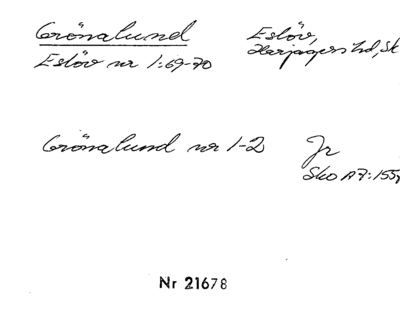 Grönalund Eslöv,
Eslöv nr 1:69-70 Harjagers hd, Sk
Grönalund nr 1-2 Jr
Sko A7:155,
Nr 21678